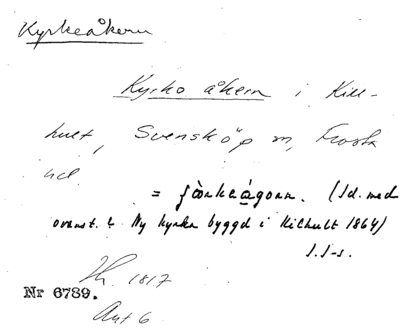 Kyrkeåkern
Kyrko åkern i Kill-
hult, Svensköp sn, Frosta
hd.
= (Id. med
ovanst. & Ny kyrka byggd i Killhult 1864)
S. I-s.
1817
Nr 6789.
Akt 6